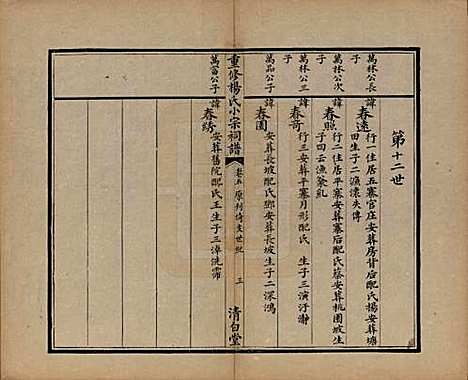 第十二世
萬林公長
子
諱
春遠
行一住居五寨官庄安葬房背后配氏楊安葬塘
田生子二漁懷失傳
萬林公次
子
諱
春照
行二住居平寨安葬寨后配氏蔡安葬桃園坡生
子四云漁篆乱
萬林公三
子
諱
春奇
行三安葬平寨月形配氏 生子三演汙瀞
萬品公子
諱
春園
安葬長坡配氏鄧安葬長坡生子二深鴻
重修楊氏小宗祠譜
卷五
三
清白堂
萬畜公子
諱
春綉
安葬舊院配氏王生子三漳洗霈